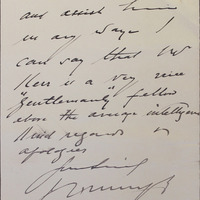 and assist him
in any way. I
can say that W
Kerr is a very nice
"Gentlemanly" fellow
above the average intelligence
Kind regards &
apologies